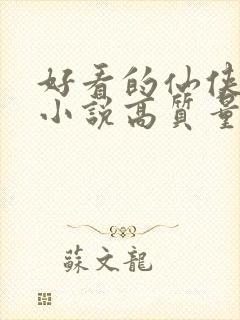 好看的仙侠
小說高質量
蘇文龍